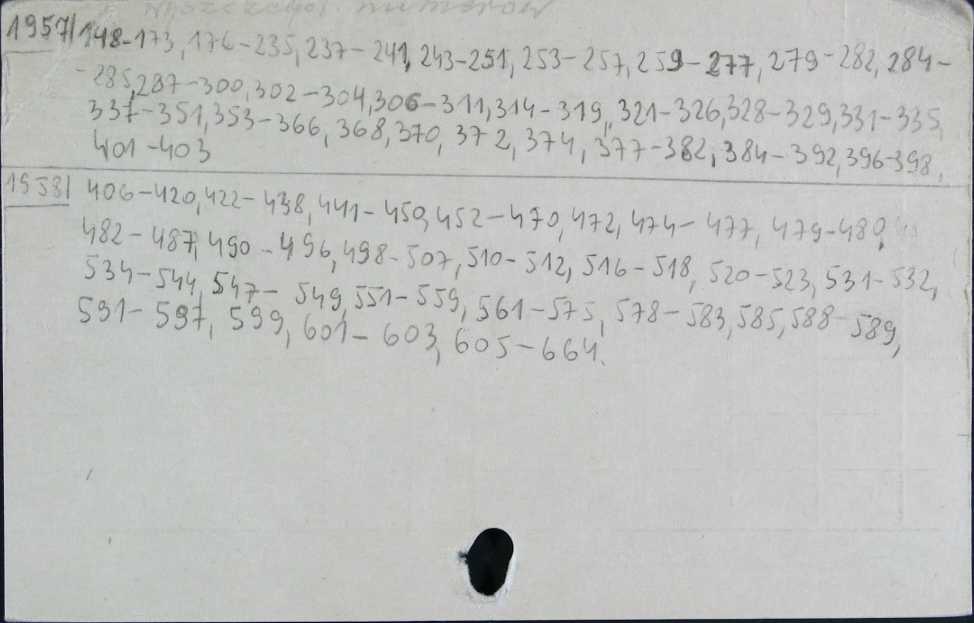 numerów
1957/ 148-173, 176-235, 237-241, 243-251, 253-257, 259-277, 279-282, 284-
-285, 287-300, 302-304, 306-311, 314-319, 321-326, 328-329, 331-335,
337-351, 353-366, 368, 370, 372, 374, 377-382, 384-392, 396-398,
401-403
1958/ 406-420, 422-438, 441-450, 452-470, 472, 474-477, 479-480,
482-487, 490-496, 498-507, 510-512, 516-518, 520-523, 531-532,
534-544, 547-549, 551-559, 561-575, 578-583, 585, 588-589,
591-597, 599, 601-603, 605-664.